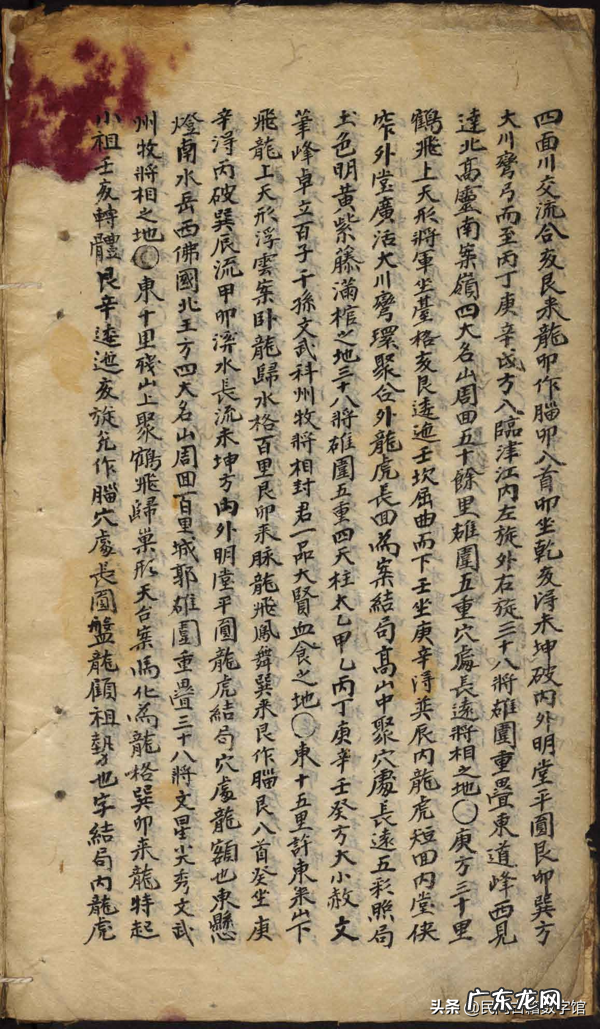 四面川交流合亥艮来龍卯作腦卯八首卯坐乾亥淂未坤破内外明堂平圓艮卯巽方
大川弯弓而至丙丁庚辛戌方入臨津江内左旋外右旋三十八將雄圍重疊東道峰西見
達北髙靈南案嶺四大名山周回五十餘里雄圍五重穴處長遠將相之地〇庚方三十里
鶴飛上天形將軍坐䑓格亥艮逶迤壬坎屈曲而下壬坐庚辛淂巽辰内龍虎短回内堂俠
窄外堂廣活大川弯環聚合外龍虎長回為案結局髙山中聚穴處長遠五彩照局
土色明黄紫藤滿棺之地三十八將雄圍五重四天柱太乙甲乙丙丁庚辛壬癸方大小赦文
筆峰卓立百子千孫文武科州牧將相封君一品大賢血食之地〇東十五里許東来山下
飛龍上天形浮雲案卧龍歸水格百里艮卯来脉龍飛鳳舞巽来艮作腦艮八首癸坐庚
辛淂丙破巽辰流甲卯濟水長流未坤方内外明堂平圓龍虎結局穴處龍額也東懸
燈南水岳西佛國北王方四大名山周回百里城郭雄圍重疊三十八將文星尖秀文武
州牧將相之地〇東十里殘山上聚鶴飛歸巢形天台案馮化為龍格巽卯来龍特起
小祖壬亥轉體艮辛逶迤亥旋兊作腦穴處長圓盤龍顧祖勢也字結局内龍虎
头条 @民间古籍数字馆
广东龙网